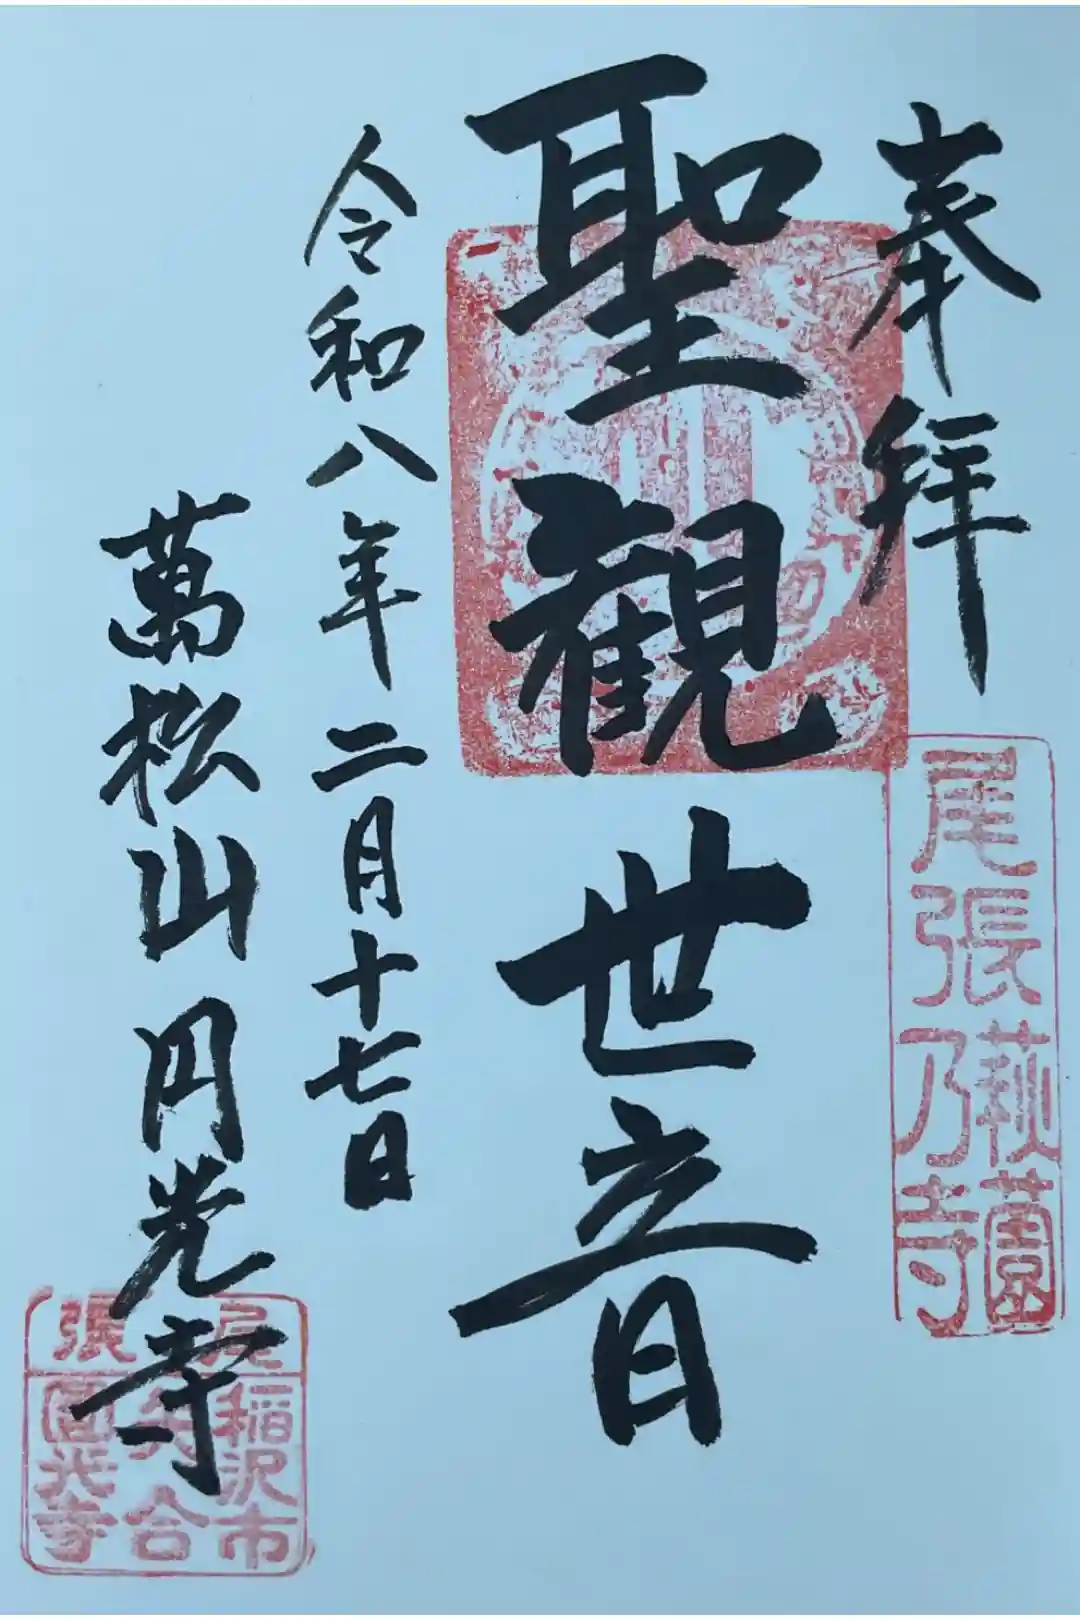 奉拝
聖觀世音
令和八年二月十七日
萬松山円光寺
尾張乃寺
萩園
尾張
稲沢市
矢合
圓光寺